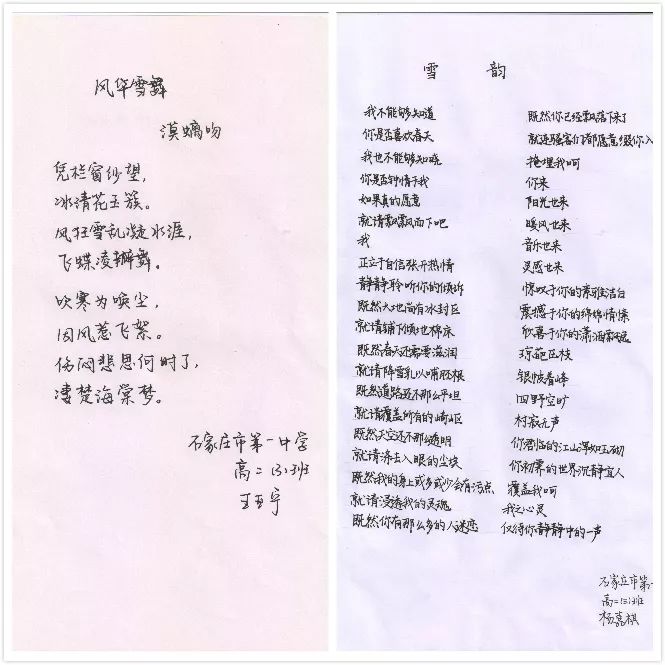 风华雪舞
漠螭吻
凭栏窗纱望,
冰清花玉簇。
风狂雪乱凝水涯,
飞蝶凌瓣舞。
吹寒为唤尘,
因风惹飞絮。
伤闷悲思何时了,
凄楚海棠梦。
石家庄市第一中学
高二(3)班
王亚宇
雪 韵
我不能够知道
你是否喜欢春天
我也不能够知晓
你是否钟情于我
如果真的愿意
就请飘飘而下吧
我
正立于自信张开热情
静静聆听你的倾诉
既然大地尚有冰封区
就请铺下倾世棉床
既然春天还需要滋润
就请降雪乳以哺胚根
既然道路还不那么平坦
就请覆盖所有的崎岖
既然天空还不那么透明
就请涤去入眼的尘埃
既然我的身上或多或少会有污点
就请浸透我的灵魂
既然你有那么多的人迷恋
既然你已经飘落下来了
就连骚客们都愿意
掩埋我呵
你来
阳光也来
暖风也来
音乐也来
灵感也来
惊叹于你的素雅洁白
震撼于你的绵绵情怀
欣喜于你的潇洒飘逸
琼葩压枝
银被着峰
四野空旷
村寂无声
你君临的江山浑如玉砌
你初霁的世界沉静宜人
覆盖我呵
我之心灵
仅待你静静中的一声
石家庄市第一
高二(3)班
杨嘉祺